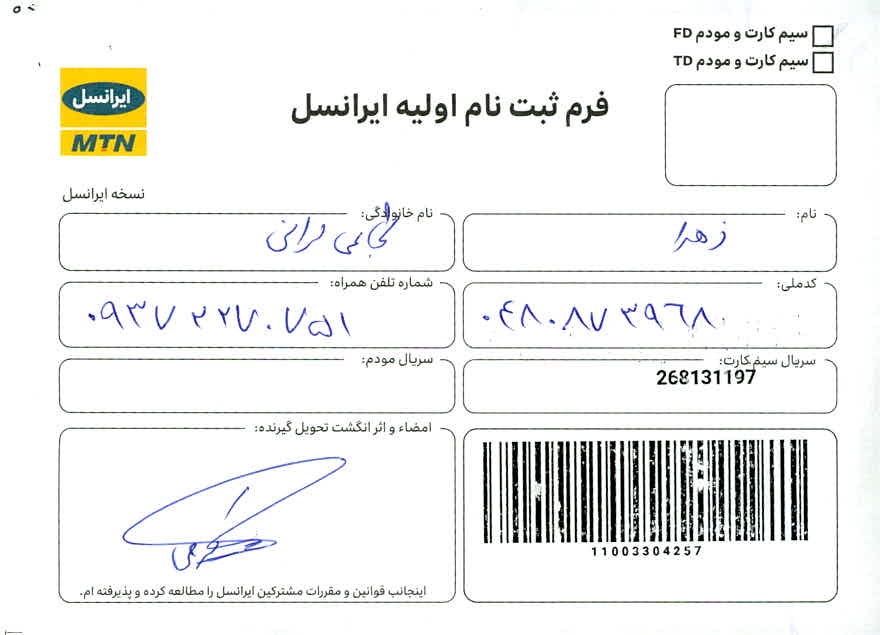 سیم کارت و مودم FD
سیم کارت و مودم TD
ایرانسل
MTN
فرم ثبت نام اولیه ایرانسل
نسخه ایرانسل
نام: زهرا
نام خانوادگی:
کدملی: ۰۴۸۰۸۷۳۹۶۸
شماره تلفن همراه: ۰۹۳۷۲۲۷۰۷۵۱
سریال سیم‌کارت: 268131197
سریال مودم:
11003304257
امضاء و اثر انگشت تحویل گیرنده:
اینجانب قوانین و مقررات مشترکین ایرانسل را مطالعه کرده و پذیرفته ام.